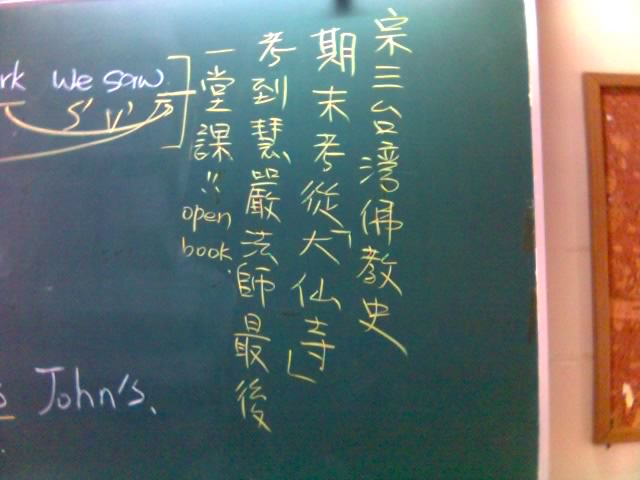 宗三台湾佛教史
期末考從「大仙寺」
考到慧嚴法師最後
一堂課!!open
book.
rk we saw
S' V'
John's.